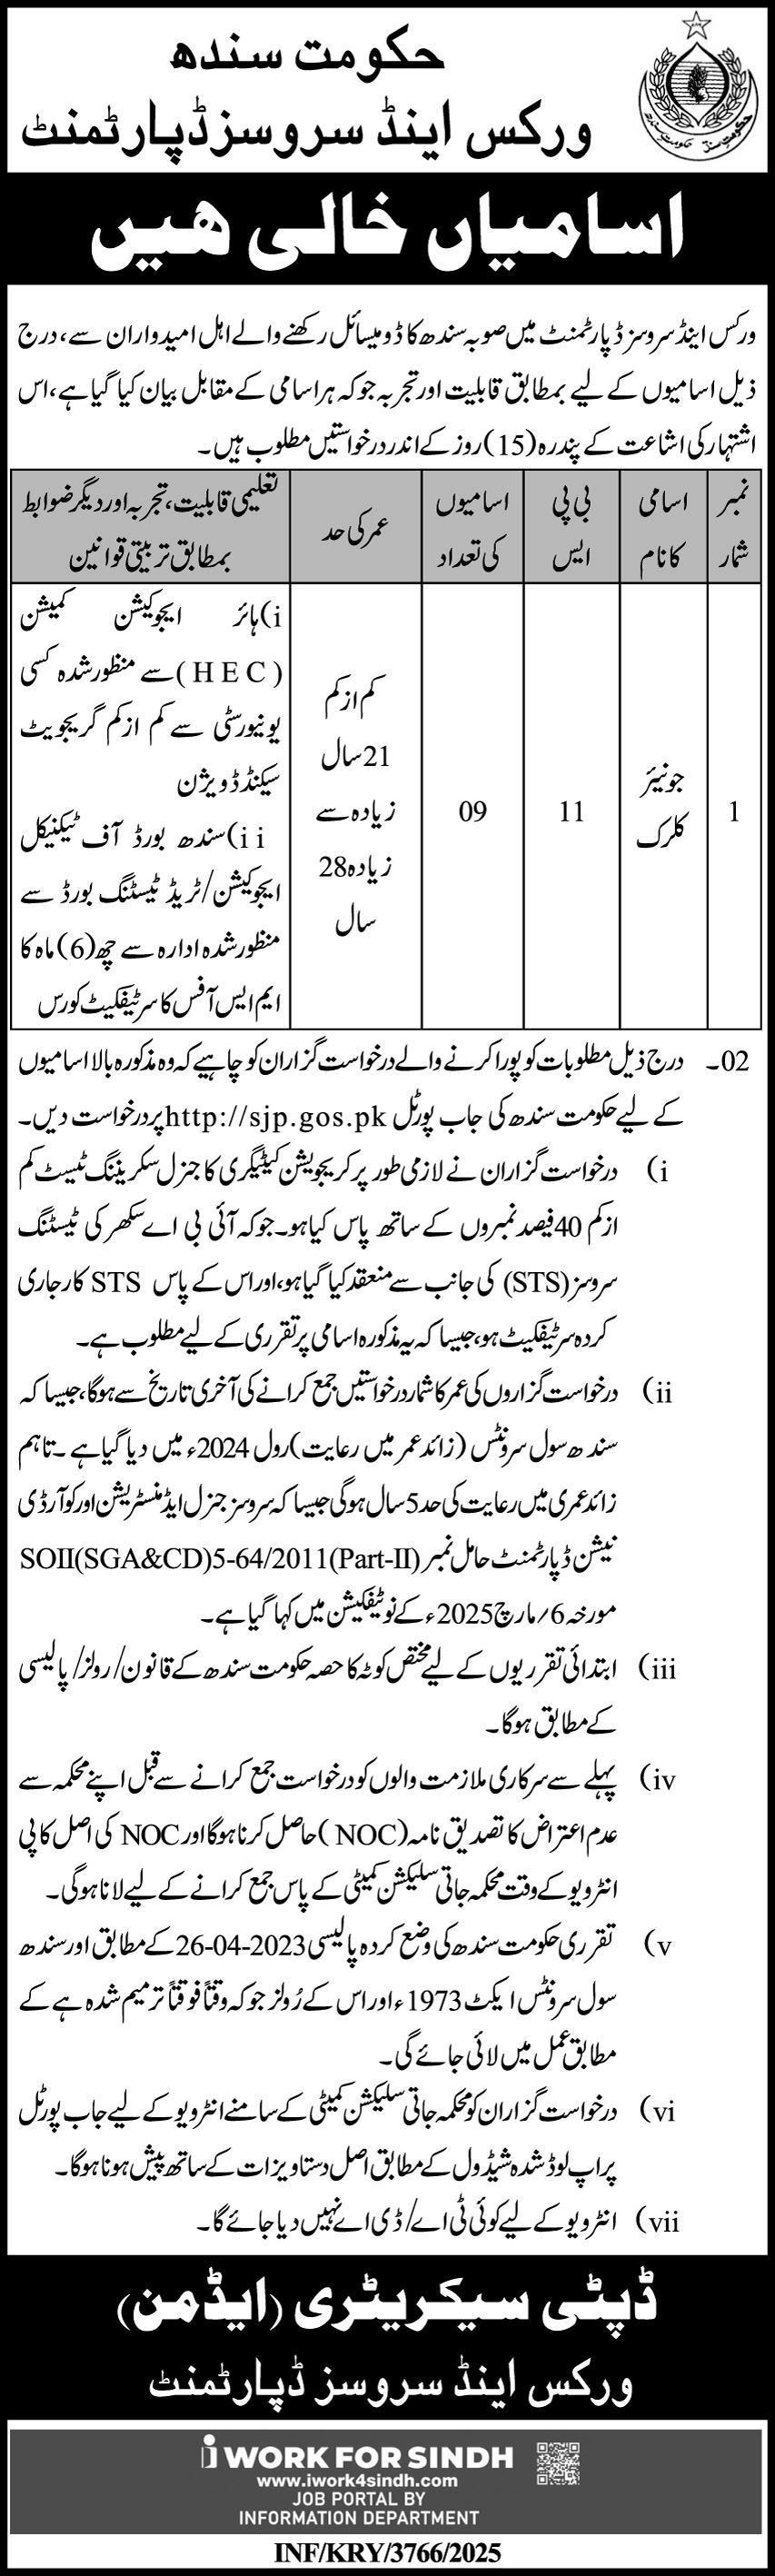 حکومت سندھ
ورکس اینڈ سروسز ڈپارٹمنٹ
حکومتِ سنڌ حکومتِ سندھ
اسامیاں خالی ھیں
ورکس اینڈ سروسز ڈپارٹمنٹ میں صوبہ سندھ کا ڈومیسائل رکھنے والے اہل امیدواران سے، درج
ذیل اسامیوں کے لیے بمطابق قابلیت اور تجربہ جو کہ ہر اسامی کے مقابل بیان کیا گیا ہے، اس
اشتہار کی اشاعت کے پندرہ (15) روز کے اندر درخواستیں مطلوب ہیں۔
نمبر شمار
اسامی کا نام
بی پی ایس
اسامیوں کی تعداد
عمر کی حد
تعلیمی قابلیت، تجربہ اور دیگر ضوابط
بمطابق تربیتی قوانین
1
جونیئر
کلرک
11
09
کم از کم
21 سال
زیادہ سے
زیادہ 28
سال
i) ہائر ایجوکیشن کمیشن
(HEC) سے منظور شدہ کسی
یونیورسٹی سے کم از کم گریجویٹ
سیکنڈ ڈویژن
ii) سندھ بورڈ آف ٹیکنیکل
ایجوکیشن/ٹریڈ ٹیسٹنگ بورڈ سے
منظور شدہ ادارہ سے چھ (6) ماہ کا
ایم ایس آفس کا سرٹیفکیٹ کورس
02۔ درج ذیل مطلوبات کو پورا کرنے والے درخواست گزاران کو چاہیے کہ وہ مذکورہ بالا اسامیوں
کے لیے حکومت سندھ کی جاب پورٹل http://sjp.gos.pk پر درخواست دیں۔
i) درخواست گزاران نے لازمی طور پر گریجویشن کیٹیگری کا جنرل سکریننگ ٹیسٹ کم
از کم 40 فیصد نمبروں کے ساتھ پاس کیا ہو۔ جو کہ آئی بی اے سکھر کی ٹیسٹنگ
سروسز (STS) کی جانب سے منعقد کیا گیا ہو، اور اس کے پاس STS کا رجاری
کردہ سرٹیفکیٹ ہو، جیسا کہ یہ مذکورہ اسامی پر تقرری کے لیے مطلوب ہے۔
ii) درخواست گزاروں کی عمر کا شمار درخواستیں جمع کرانے کی آخری تاریخ سے ہوگا، جیسا کہ
سندھ سول سرونٹس (زائد عمر میں رعایت) رول 2024ء میں دیا گیا ہے۔ تاہم
زائد عمری میں رعایت کی حد 5 سال ہوگی جیسا کہ سروسز جنرل ایڈمنسٹریشن اور کوآرڈی
نیشن ڈپارٹمنٹ حامل نمبر SOII(SGA&CD)5-64/2011(Part-II)
مورخہ 6/مارچ 2025ء کے نوٹیفکیشن میں کہا گیا ہے۔
iii) ابتدائی تقرریوں کے لیے مختص کوٹہ کا حصہ حکومت سندھ کے قانون/رولز/پالیسی
کے مطابق ہوگا۔
iv) پہلے سے سرکاری ملازمت والوں کو درخواست جمع کرانے سے قبل اپنے محکمہ سے
عدم اعتراض کا تصدیق نامہ (NOC) حاصل کرنا ہوگا اور NOC کی اصل کاپی
انٹرویو کے وقت محکمہ جاتی سلیکشن کمیٹی کے پاس جمع کرانے کے لیے لانا ہوگی۔
v) تقرری حکومت سندھ کی وضع کردہ پالیسی 26-04-2023 کے مطابق اور سندھ
سول سرونٹس ایکٹ 1973ء اور اس کے رُولز جو کہ وقتاً فوقتاً ترمیم شدہ ہے کے
مطابق عمل میں لائی جائے گی۔
vi) درخواست گزاران کو محکمہ جاتی سلیکشن کمیٹی کے سامنے انٹرویو کے لیے جاب پورٹل
پر اپ لوڈ شدہ شیڈول کے مطابق اصل دستاویزات کے ساتھ پیش ہونا ہوگا۔
vii) انٹرویو کے لیے کوئی ٹی اے/ڈی اے نہیں دیا جائے گا۔
ڈپٹی سیکریٹری (ایڈمن)
ورکس اینڈ سروسز ڈپارٹمنٹ
i WORK FOR SINDH
www.iwork4sindh.com
JOB PORTAL BY
INFORMATION DEPARTMENT
INF/KRY/3766/2025